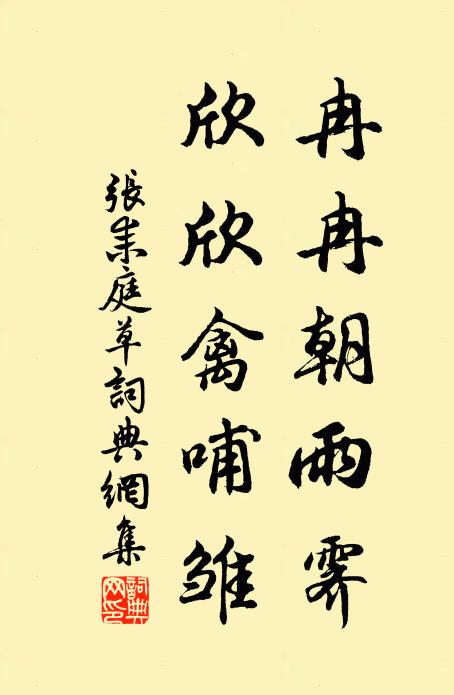 冉冉朝雨霽
欣欣禽哺雏
張耒庭草詞典網集
詞典网印